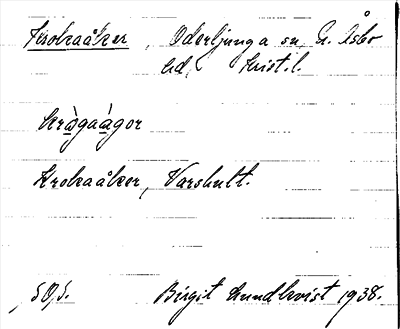 Krokaåker, Oderljunga sn, N. Åsbo
hd, Krist.l.
krògaàgor
Krokaåker, Varshult.
Birgit Lundkvist 1938.